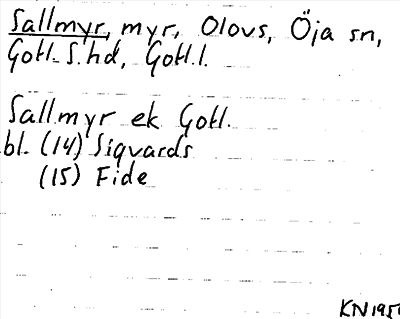 Sallmyr, myr, Olovs, Öja sn,
Gotl. S. hd, Gotl. l.
Sallmyr ek Gotl.
bl. (14) Sigvards
(15) Fide